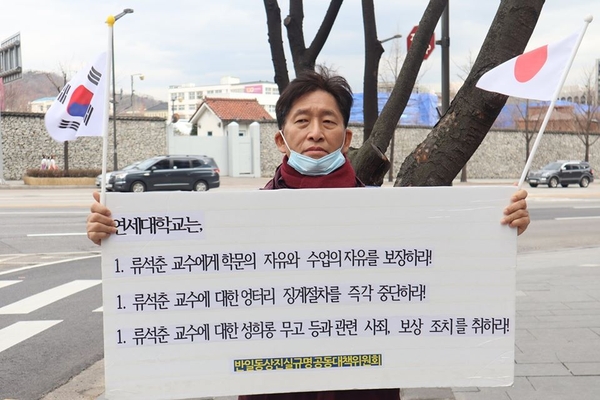 연세대학교는,
1. 류석춘 교수에게 학문의 자유와 수업의 자유를 보장하라!
1. 류석춘 교수에 대한 엉터리 징계절차를 즉각 중단하라!
1. 류석춘 교수에 대한 성희롱 무고 등과 관련 사죄, 보상 조치를 취하라!
반일동상진실규명공동대책위원회